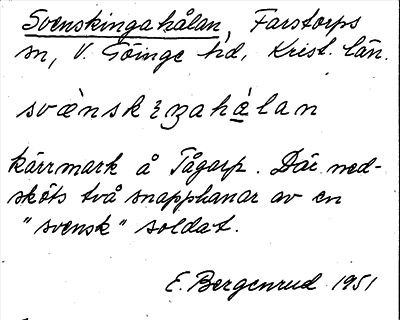 Svenskingahålan, Farstorps
sn, V. Göinge hd, Krist. län.
kärrmark å Tågarp. Där ned-
sköts två snapphanar av en
"svensk" soldat.
E. Bergenrud 1951